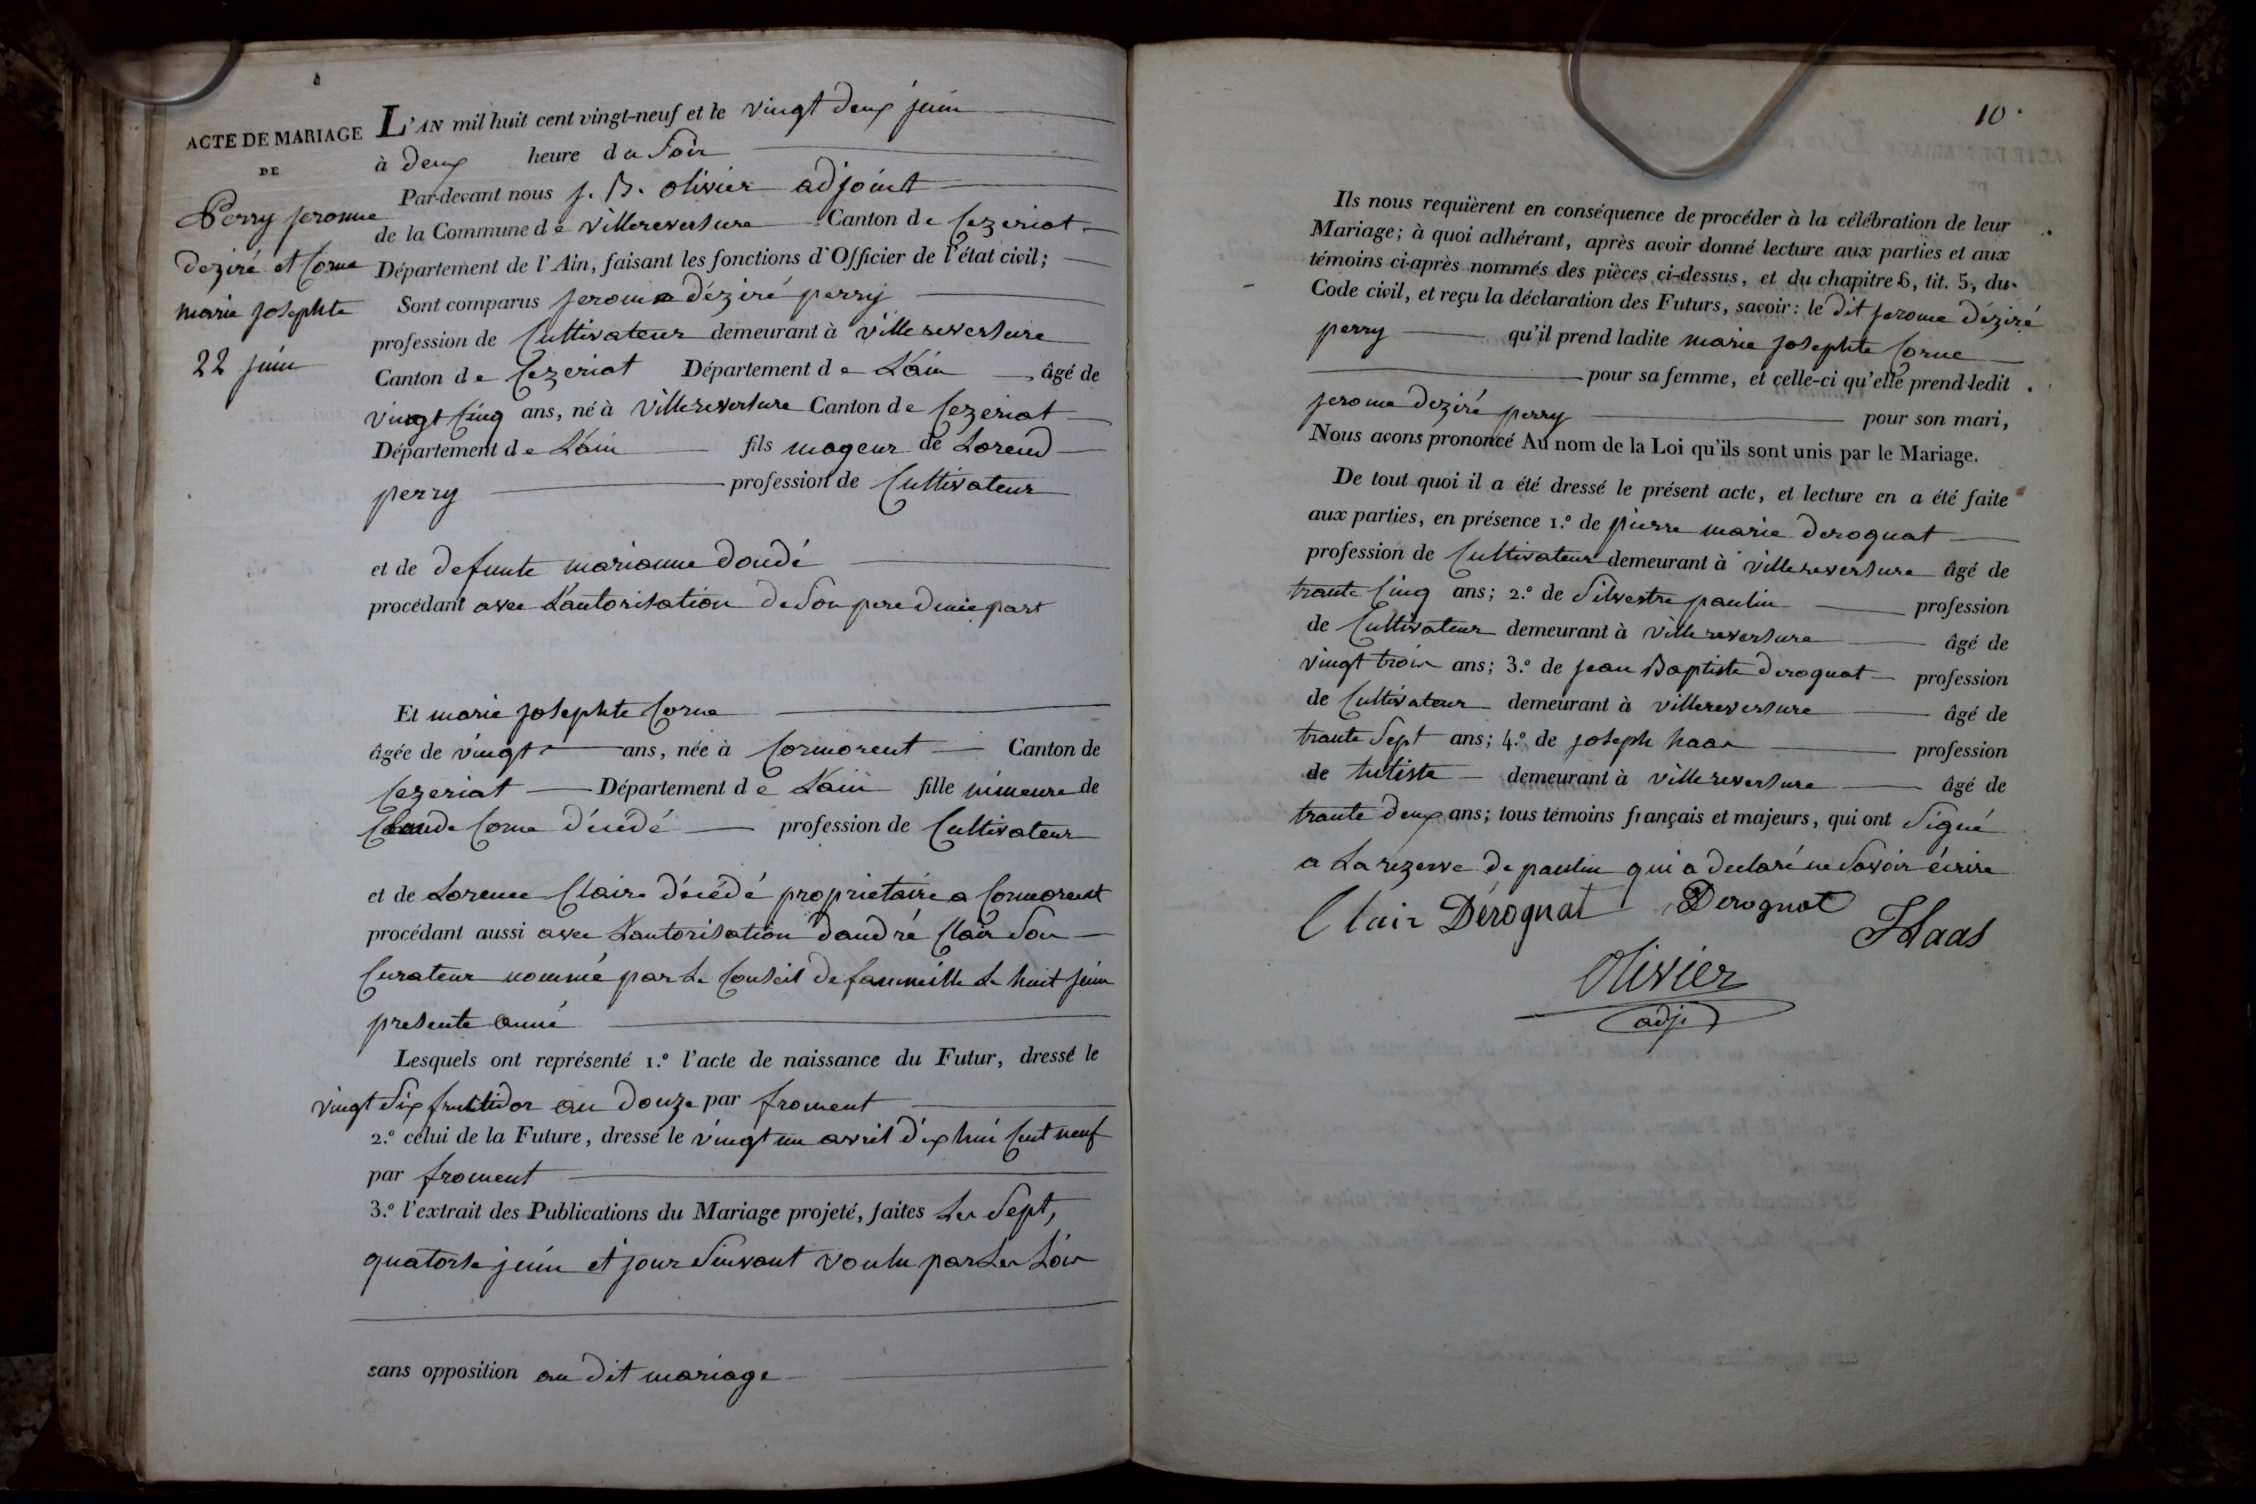 ACTE DE MARIAGE
DE
Perry jerome
deziré et Corne
marie josephte
22 juin
L'AN mil huit cent vingt-neuf et le vingt deux juin
à deux heure du Soir
Par-devant nous j. B. olivier adjoint
de la Commune de villereversure Canton de Cezeriat
Département de l'Ain, faisant les fonctions d'Officier de l'état civil;
Sont comparus jerome déziré perry
profession de Cultivateur demeurant à villereversure
Canton de Cezeriat Département de L'áin âgé de
vingt Cinq ans, né à villereversure Canton de Cezeriat
Département de L'áin fils mageur de Lorend
perry profession de Cultivateur
et de defunte marianne doudé
procédant avec L'autorisation de Son pere dunie part
Et marie josephte Corne
âgée de vingt ans, née à Cormorent Canton de
Cezeriat Département de L'ain fille mineure de
Claude Corne décédé profession de Cultivateur
et de Lorence Claire décédé proprietaire a Cormorent
procédant aussi avec L'autorisation d'andré Clair Son
Curateur nommé par Le Conseil de fammille Le huit juin
presente anné
Lesquels ont représenté 1.º l'acte de naissance du Futur, dressé le
vingt Six fructidor an douze par froment
2.º celui de la Future, dressé le vingt un avril dix hui Cent neuf
par froment
3.º l'extrait des Publications du Mariage projeté, faites Les Sept,
quatorse juin et jour Suivant voulu par Les Lois
sans opposition au dit mariage
10
Ils nous requièrent en conséquence de procéder à la célébration de leur
Mariage; à quoi adhérant, après avoir donné lecture aux parties et aux
témoins ci-après nommés des pièces ci-dessus, et du chapitre 6, tit. 5, du
Code civil, et reçu la déclaration des Futurs, savoir: le dit jerome déziré
perry qu'il prend ladite marie josephte Corne
pour sa femme, et celle-ci qu'elle prend ledit
jerome deziré perry pour son mari,
Nous avons prononcé Au nom de la Loi qu'ils sont unis par le Mariage.
De tout quoi il a été dressé le présent acte, et lecture en a été faite
aux parties, en présence 1.º de pierre marie derognat
profession de Cultivateur demeurant à villereversure âgé de
trante Cinq ans; 2.º de Silvestre paulin profession
de Cultivateur demeurant à villereversure âgé de
vingt trois ans; 3.º de jean Baptiste derognat profession
de Cultivateur demeurant à villereversure âgé de
trante Sept ans; 4.º de joseph haas profession
de demeurant à villereversure âgé de
trante deux ans; tous témoins français et majeurs, qui ont Signé
a La rezerve de paulin qui a declaré ne Savoir écrire
Clair Dérognat Derognat
JHaas
Olivier
adj.